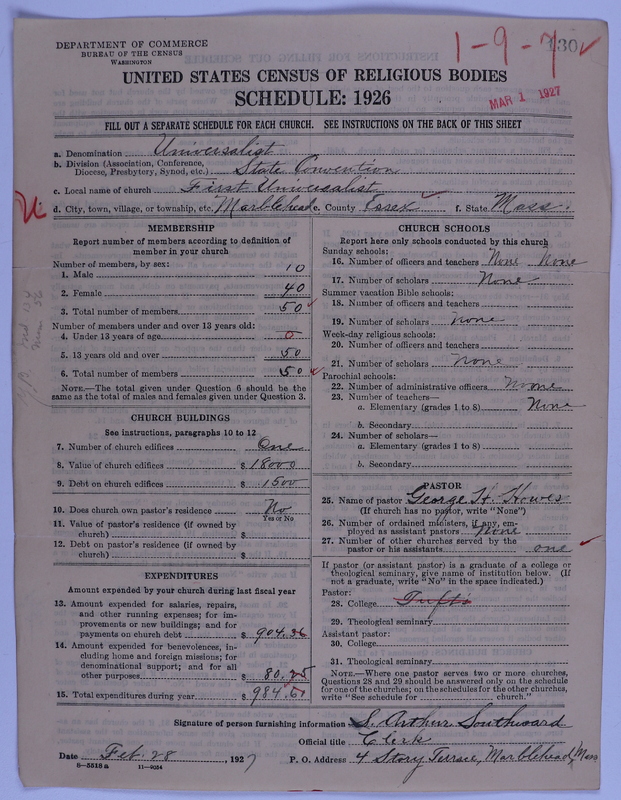 DEPARTMENT OF COMMERCE
BUREAU OF THE CENSUS
WASHINGTON
1-9-7 ✓
130
UNITED STATES CENSUS OF RELIGIOUS BODIES
SCHEDULE: 1926
MAR 1 1927
FILL OUT A SEPARATE SCHEDULE FOR EACH CHURCH. SEE INSTRUCTIONS ON THE BACK OF THIS SHEET
a. Denomination Universalist
b. Division (Association, Conference, Diocese, Presbytery, Synod, etc.) State Convention
c. Local name of church First Universalist
d. City, town, village, or township, etc. Marblehead e. County Essex f. State Mass.
MEMBERSHIP
Report number of members according to definition of
member in your church
Number of members, by sex:
1. Male 10
2. Female 40
3. Total number of members 50
Number of members under and over 13 years old:
4. Under 13 years of age 0
5. 13 years old and over 50
6. Total number of members 50
NOTE.—The total given under Question 6 should be
same as the total of males and females given under Question 3.
CHURCH BUILDINGS
See instructions, paragraphs 10 to 12
7. Number of church edifices One
8. Value of church edifices $18000
9. Debt on church edifices $1500
10. Does church own pastor's residence No
Yes or No
11. Value of pastor's residence (if owned by
church) $
12. Debt on pastor's residence (if owned by
church) $
EXPENDITURES
Amount expended by your church during last fiscal year
13. Amount expended for salaries, repairs,
and other running expenses; for im-
provements or new buildings; and for
payments on church debt $904.36
14. Amount expended for benevolences, in-
cluding home and foreign missions; for
denominational support; and for all
other purposes $80.25
15. Total expenditures during year $984.61
CHURCH SCHOOLS
Report here only schools conducted by this church
Sunday schools:
16. Number of officers and teachers None None
17. Number of scholars None
Summer vacation Bible schools:
18. Number of officers and teachers
19. Number of scholars none
Week-day religious schools:
20. Number of officers and teachers
21. Number of scholars none
Parochial schools:
22. Number of administrative officers none
23. Number of teachers—
a. Elementary (grades 1 to 8) None
b. Secondary
24. Number of scholars—
a. Elementary (grades 1 to 8)
b. Secondary
PASTOR
25. Name of pastor George H. Howes
(If church has no pastor, write "None")
26. Number of ordained ministers, if any, em-
ployed as assistant pastors None
27. Number of other churches served by the
pastor or his assistants one
If pastor (or assistant pastor) is a graduate of a college or
theological seminary, give name of institution below. (If
not a graduate, write "No" in the space indicated.)
Pastor:
28. College Tufts
29. Theological seminary
Assistant pastor:
30. College
31. Theological seminary
NOTE.—Where one pastor serves two or more churches,
Questions 28 and 29 should be answered only on the schedule
for one of the churches; on the schedules for the other churches,
write "See schedule for church."
Signature of person furnishing information S. Arthur Southward
Official title Clerk
Date Feb 28, 1927 P. O. Address 4 Story Terrace, Marblehead, Mass
8—5518 a 11—9054